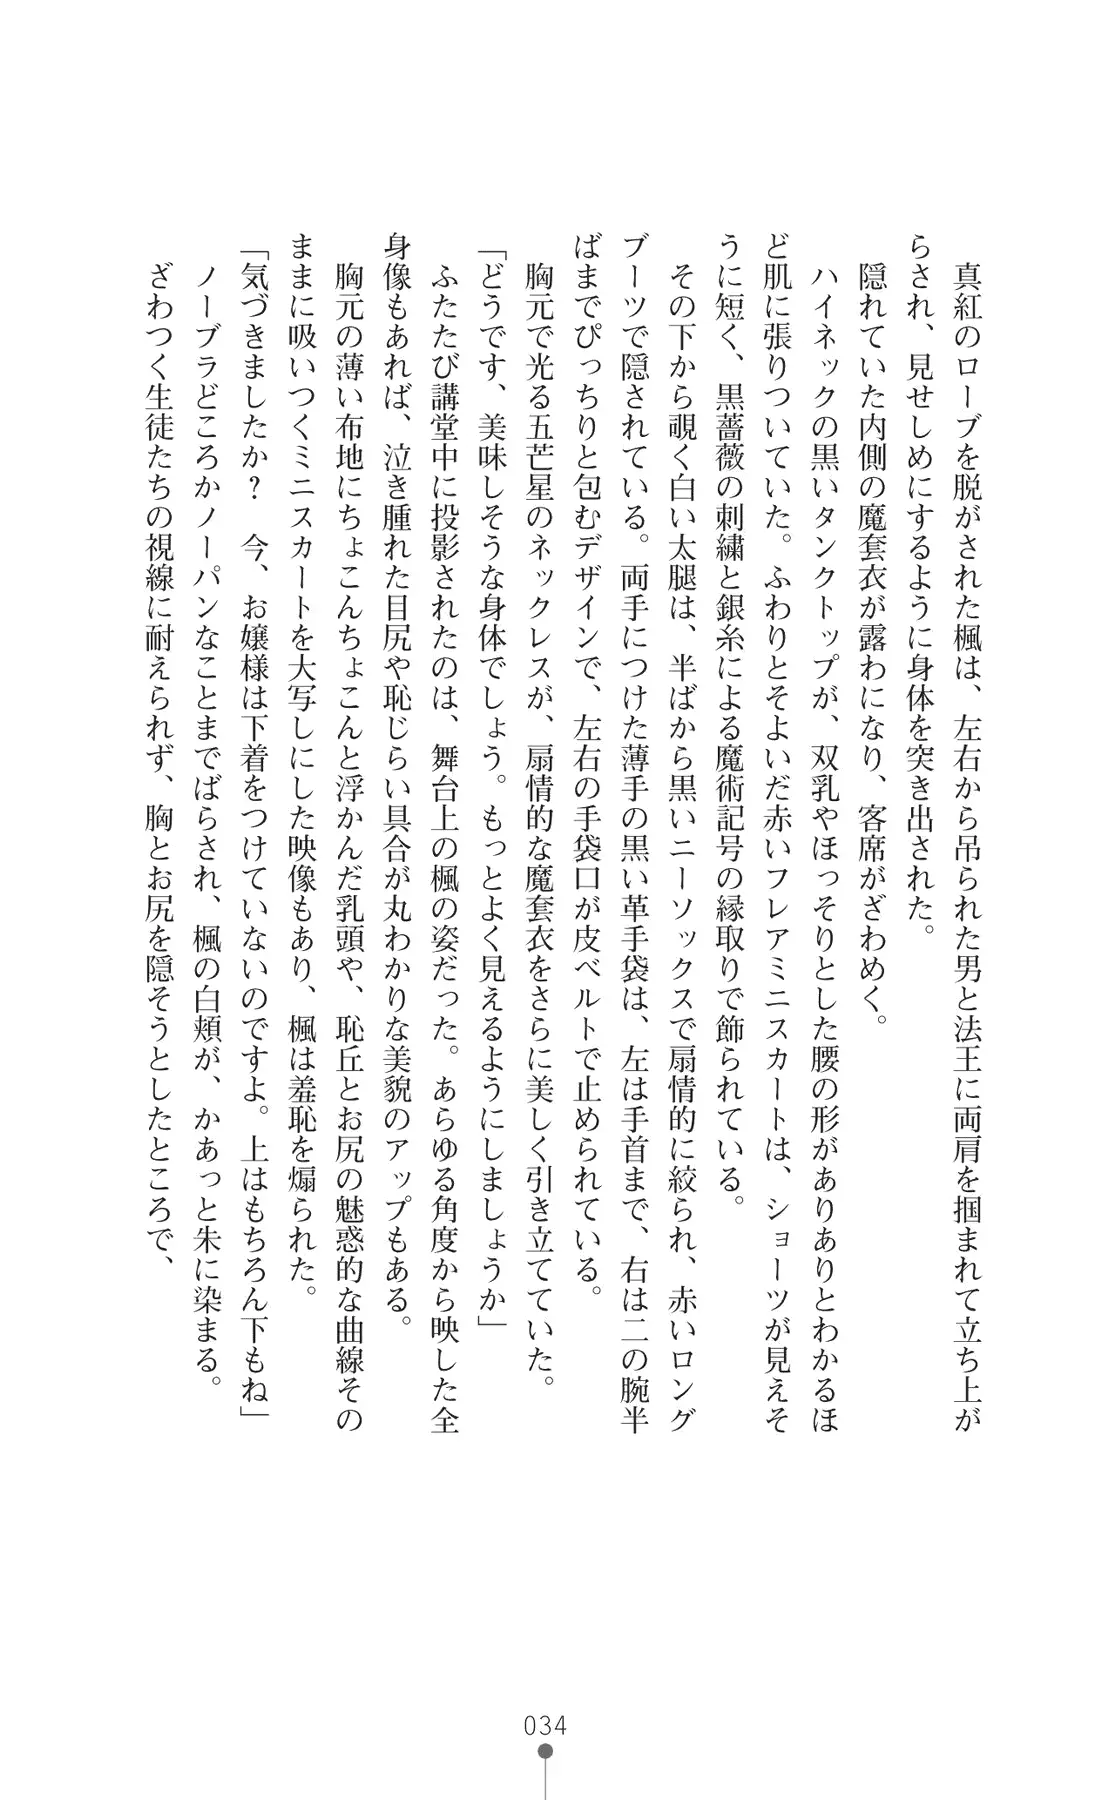 真紅のローブを脱がされた楓は、左右から吊られた男と法王に両肩を掴まれて立ち上が
らされ、見せしめにするように身体を突き出された。
隠れていた内側の魔套衣が露わになり、客席がざわめく。
ハイネックの黒いタンクトップが、双乳やほっそりとした腰の形がありありとわかるほ
ど肌に張りついていた。ふわりとそよいだ赤いフレアミニスカートは、ショーツが見えそ
うに短く、黒薔薇の刺繍と銀糸による魔術記号の縁取りで飾られている。
その下から覗く白い太腿は、半ばから黒いニーソックスで扇情的に絞られ、赤いロング
ブーツで隠されている。両手につけた薄手の黒い革手袋は、左は手首まで、右は二の腕半
ばまでぴっちりと包むデザインで、左右の手袋口が皮ベルトで止められている。
胸元で光る五芒星のネックレスが、扇情的な魔套衣をさらに美しく引き立てていた。
「どうです、美味しそうな身体でしょう。もっとよく見えるようにしましょうか」
ふたたび講堂中に投影されたのは、舞台上の楓の姿だった。あらゆる角度から映した全
身像もあれば、泣き腫れた目尻や恥じらい具合が丸わかりな美貌のアップもある。
胸元の薄い布地にちょこんちょこんと浮かんだ乳頭や、恥丘とお尻の魅惑的な曲線その
ままに吸いつくミニスカートを大写しにした映像もあり、楓は羞恥を煽られた。
「気づきましたか？　今、お嬢様は下着をつけていないのですよ。上はもちろん下もね」
ノーブラどころかノーパンなことまでばらされ、楓の白頬が、かあっと朱に染まる。
ざわつく生徒たちの視線に耐えられず、胸とお尻を隠そうとしたところで、
034